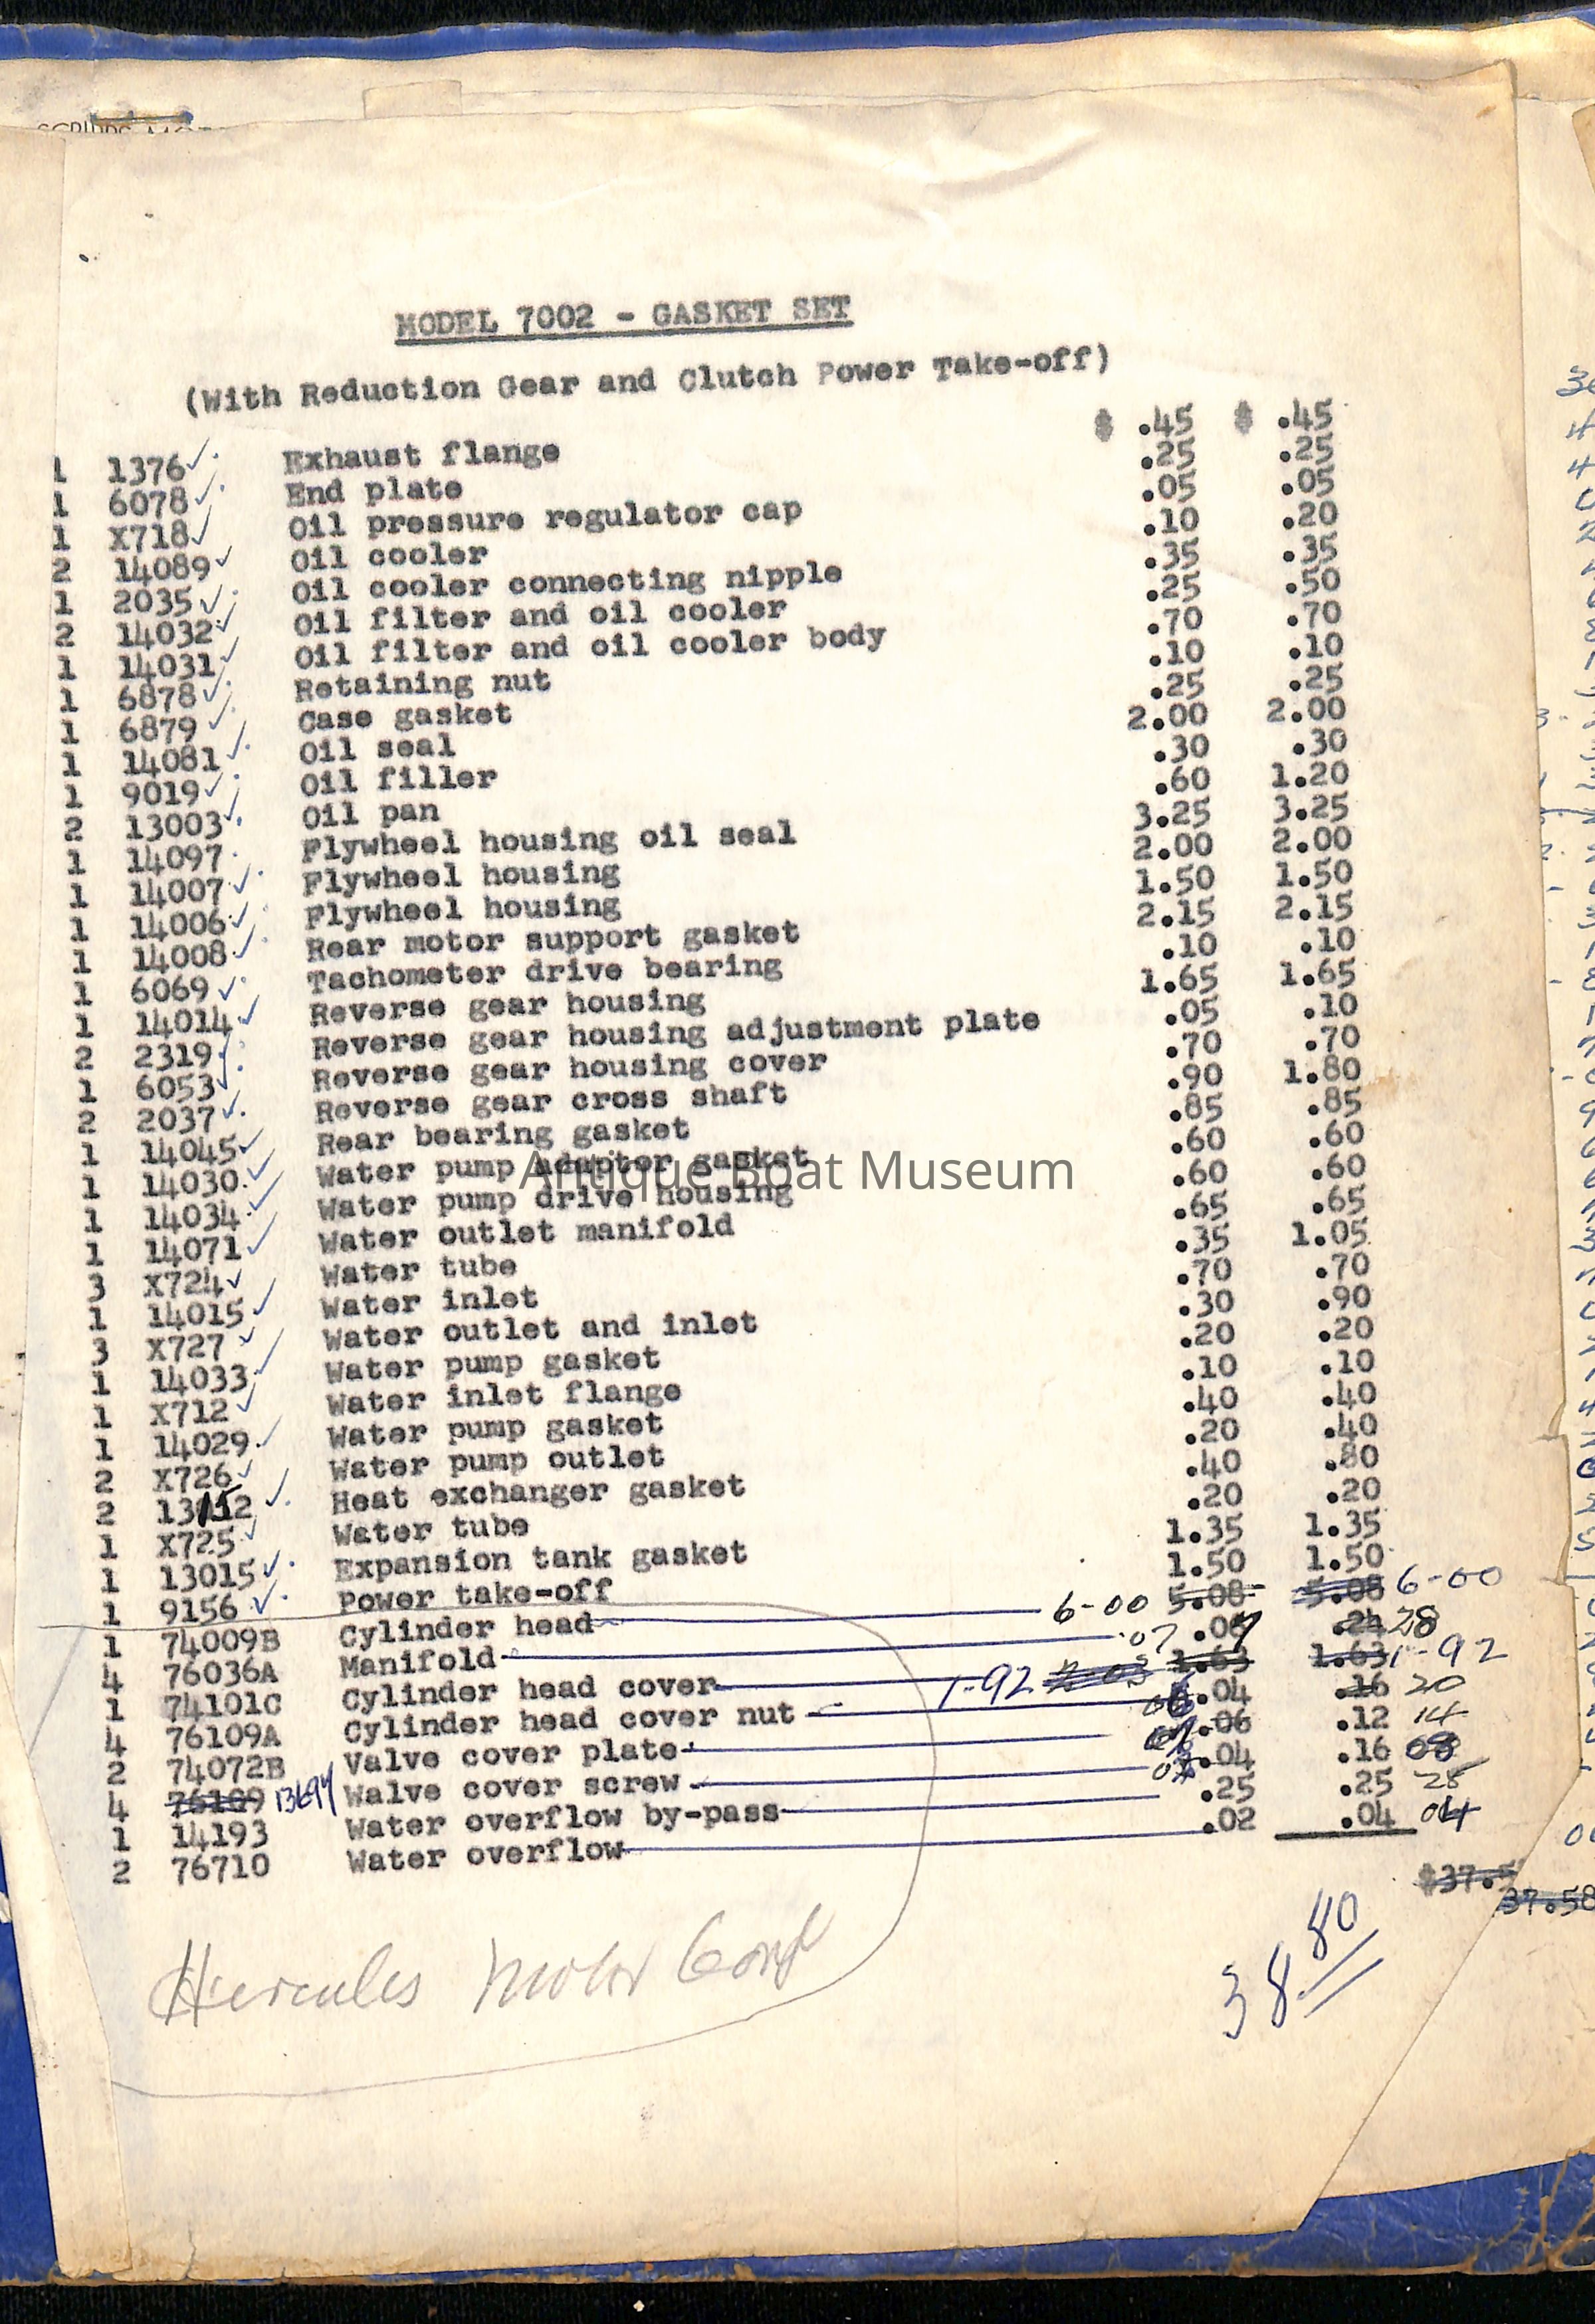 MODEL 7002 - GASKET SET
(With Reduction Gear and Clutch Power Take-off)
1 1376✓ Exhaust flange $ .45 $ .45
1 6078✓ End plate .25 .25
1 X718✓ Oil pressure regulator cap .05 .05
2 14089✓ Oil cooler .10 .20
1 2035✓ Oil cooler connecting nipple .35 .35
2 14032✓ Oil filter and oil cooler .25 .50
1 14031✓ Oil filter and oil cooler body .70 .70
1 6878✓ Retaining nut .10 .10
1 6879✓ Case gasket .25 .25
1 14081✓ Oil seal 2.00 2.00
1 9019✓ Oil filler .30 .30
2 13003✓ Oil pan .60 1.20
1 14097 Flywheel housing oil seal 3.25 3.25
1 14007✓ Flywheel housing 2.00 2.00
1 14006✓ Flywheel housing 1.50 1.50
1 14008✓ Rear motor support gasket 2.15 2.15
1 6069✓ Tachometer drive bearing .10 .10
1 14014✓ Reverse gear housing 1.65 1.65
2 2319✓ Reverse gear housing adjustment plate .05 .10
1 6053✓ Reverse gear housing cover .70 .70
2 2037✓ Reverse gear cross shaft .90 1.80
1 14045✓ Rear bearing gasket .85 .85
1 14030✓ Water pump adaptor gasket .60 .60
Antique Boat Museum
1 14034✓ Water pump drive housing .60 .60
1 14071✓ Water outlet manifold .65 .65
3 X724✓ Water tube .35 1.05
1 14015✓ Water inlet .70 .70
3 X727✓ Water outlet and inlet .30 .90
1 14033✓ Water pump gasket .20 .20
1 X712✓ Water inlet flange .10 .10
1 14029✓ Water pump gasket .40 .40
2 X726✓ Water pump outlet .20 .40
2 ✓ Heat exchanger gasket .40 .80
1 X725✓ Water tube .20 .20
1 13015✓ Expansion tank gasket 1.35 1.35
1 9156✓ Power take-off 1.50 1.50
1 74009B Cylinder head 6-00 5.08 5.08 6-00
4 76036A Manifold .07 .24 28
1 74101C Cylinder head cover 1-92 1.63 1.63 1-92
4 76109A Cylinder head cover nut .04 .16 20
2 74072B Valve cover plate .06 .12 14
4 76109 Walve cover screw .04 .16 08
1 14193 Water overflow by-pass .25 .25 25
2 76710 Water overflow .02 .04 04
$37.5
37.58
38.80
Hercules Motor Corp